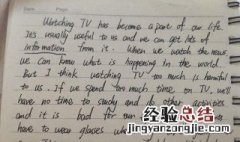 Date Page
Watching TV has become a part of our life.
It's usually useful to us and we can get lots of
information from it. When we watch the news,
we can know what is happening in the world.
But I think watching TV too much is harmful
to us. If we spend too much time on TV, we'll
have no time to study and do other activities
and it is bad for our
have to wear glasses when
经验总结
www.jingyanzongjie.com